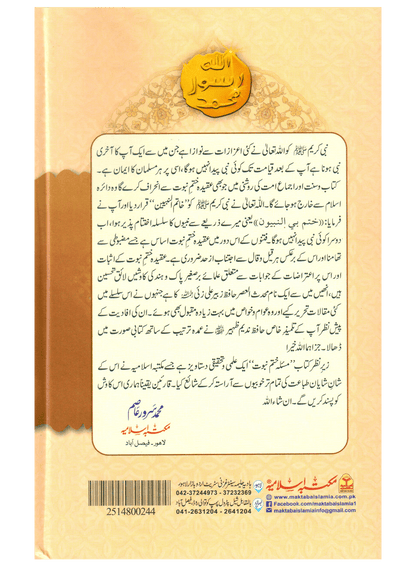 الله
رسول
محمد
نبی کریم ﷺ کو اللہ تعالیٰ نے کئی اعزازات سے نوازا ہے جن میں سے ایک آپ کا آخری
نبی ہونا ہے آپ کے بعد قیامت تک کوئی نبی پیدا نہیں ہوگا، اسی پر ہر مسلمان کا ایمان ہے۔
کتاب وسنت اور اجماع امت کی روشنی میں جو بھی عقیدہ ختم نبوت سے انحراف کرے گا وہ دائرہ
اسلام سے خارج ہو جائے گا۔ اللہ تعالیٰ نے نبی کریم ﷺ کو ”خاتم النبیین“ قرار دیا اور آپ نے
فرمایا: ((ختم بي النبيون)) یعنی میرے ذریعے سے نبیوں کا سلسلہ اختتام پذیر ہوا، اب
دوسرا کوئی نبی پیدا نہیں ہوگا۔ فتنوں کے اس دور میں عقیدہ ختم نبوت اساس ہے جسے مضبوطی سے
تھامنا اور اس کے برعکس ہر قیل وقال سے اجتناب از حد ضروری ہے۔ عقیدہ ختم نبوت کے اثبات
اور اس پر اعتراضات کے جوابات سے متعلق علمائے برصغیر پاک و ہند کی کاوشیں لائق تحسین
ہیں، انھیں میں سے ایک نام محدث العصر حافظ زبیر علی زئی رحمہ اللہ کا ہے جنہوں نے اس سلسلے میں
کئی مقالات تحریر کیے اور وہ عوام و خواص میں بہت زیادہ مقبول بھی ہوئے۔ ان کی افادیت کے
پیش نظر آپ کے تلمیذ خاص حافظ ندیم ظہیر نے عمدہ ترتیب کے ساتھ کتابی صورت میں
ڈھالا۔ جزاہما اللہ خیرا
زیر نظر کتاب ”مسئلہ ختم نبوت“ ایک علمی و تحقیقی دستاویز ہے جسے مکتبہ اسلامیہ نے اس کے
شان شایان طباعت کی تمام تر خوبیوں سے آراستہ کر کے شائع کیا۔ قارئین یقیناً ہماری اس کاوش
کو پسند کریں گے۔ ان شاء اللہ
محمد سرور عاصم
مکتبہ اسلامیہ
لاہور۔ فیصل آباد
2514800244
042-37244973 - 37232369
041-2631204 - 2641204
مکتبہ اسلامیہ
www.maktabaislamia.com.pk
Facebook.com/maktabaislamia1
maktabaislamiainfo@gmail.com